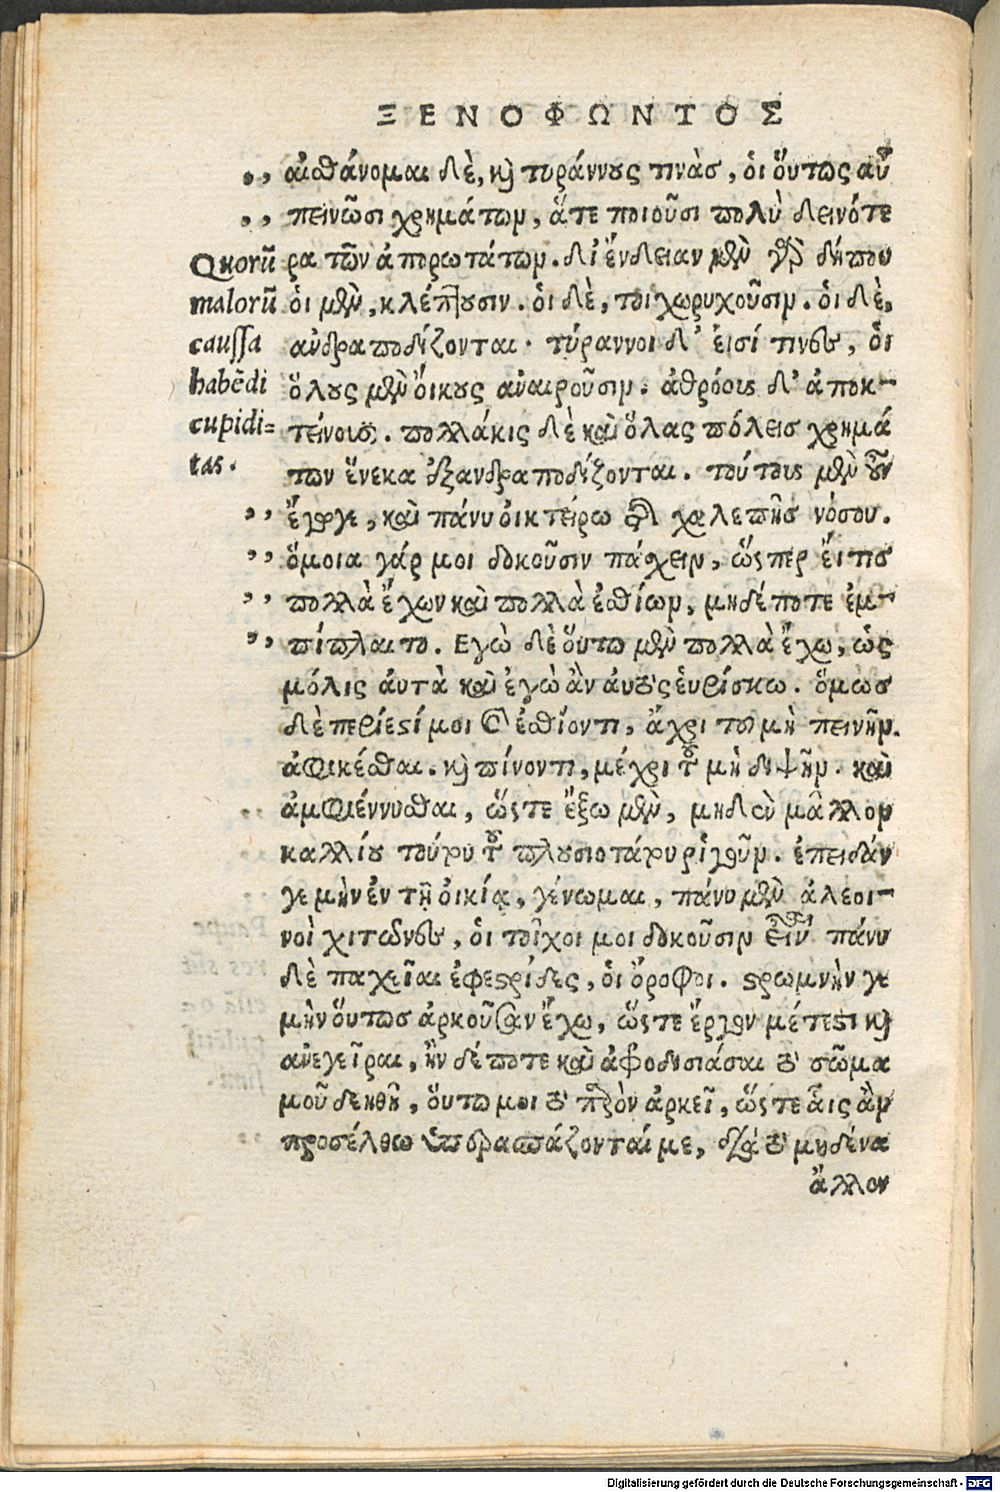 ΞΕΝΟΦΩΝΤΟΣ
,, αἰσθάνομαι δὲ, καὶ τυράννους τινὰσ, ὁι ὅυτως αὖ
,, πεινῶσι χρημάτων, ἅτε ποιοῦσι πολὺ δεινότε
Quorū ρα τῶν ἀπορωτάτων. δι ἔνδειαν μὲν γὰρ δήπου
malorū ὁι μὲν, κλέπτουσιν. ὁι δὲ, τοιχωρυχοῦσιν. ὁι δὲ,
caussa ἀνδραποδίζονται. τύραννοι δ' ἐισί τινες, ὁι
habēdi ὅλους μὲν ὄικους ἀναιροῦσιν. ἀθρόους δ' ἀποκ-
cupidi= τείνουσι. πολλάκις δὲ καὶ ὅλας πόλεισ χρημά
tas. των ἕνεκα ἐξανδραποδίζονται. τούτους μὲν οὖν
,, ἔγωγε, καὶ πάνυ ὀικτείρω τῆς χαλεπῆσ νόσου.
,, ὅμοια γάρ μοι δοκοῦσιν πάσχειν, ὥςπερ ἔι τισ
,, πολλὰ ἔχων καὶ πολλὰ ἐσθίων, μηδέποτε ἐμ-
,, πίπλαιτο. Εγὼ δὲ ὅυτω μὲν πολλὰ ἔχω, ὡς
μόλις ἀυτὰ καὶ ἐγὼ ἂν ἀυτὸς ἑυρίσκω. ὅμωσ
δὲ περίεστί μοι καὶ ἐσθίοντι, ἄχρι τοῦ μὴ πεινῆν.
ἀφικέσθαι. καὶ πίνοντι, μέχρι τοῦ μὴ διψῆν. καὶ
ἀμφιέννυσθαι, ὥςτε ἔξω μὲν, μηδὲν μᾶλλον
καλλίου τούτου τοῦ πλουσιοτάτου ῥιγοῦν. ἐπειδάν
γε μὴν ἐν τῇ ὀικίᾳ, γένωμαι, πάνυ μὲν ἀλεοι-
νοὶ χιτῶνες, ὁι τοῖχοι μοι δοκοῦσιν εἶναι πάνυ
δὲ παχεῖαι ἐφεστρίδες, ὁι ὄροφοι. στρωμνὴν γε
μὴν ὅυτωσ ἀρκοῦσαν ἔχω, ὥςτε ἔργον μέτεστι καὶ
ἀνεγεῖραι, ἢν δέποτε καὶ ἀφοδισιάσαι τὸ σῶμα
μοῦ δεηθῇ, ὅυτω μοι τὸ παρὸν ἀρκεῖ, ὥςτε ἇις ἂν
προσέλθω ὑπεραπάζονταί με, διὰ τὸ μηδένα
ἄλλον
Digitalisierung gefördert durch die Deutsche Forschungsgemeinschaft - DFG